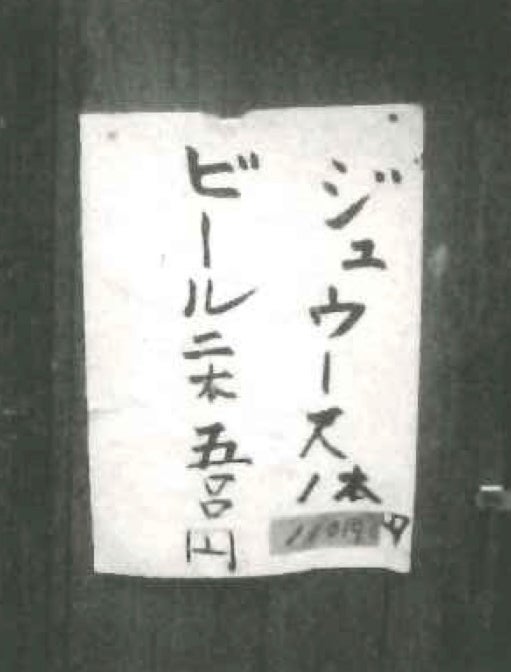 ジュウース1本
110円
ビール二本五〇〇円